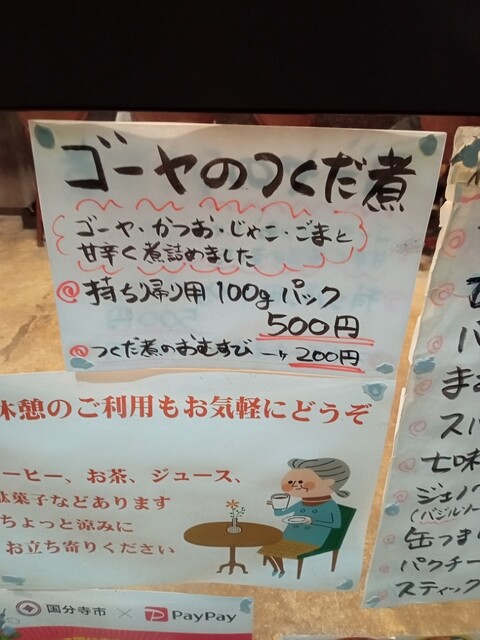 ゴーヤのつくだ煮
ゴーヤ・かつお・じゃこ・ごまと
甘辛く煮詰めました
持ち帰り用 100g パック
500円
つくだ煮のおむすび 一ヶ 200円
休憩のご利用もお気軽にどうぞ
ーヒー、お茶、ジュース、
駄菓子などあります
ちょっと涼みに
お立ち寄りください
国分寺市 × PayPay
スパ
七味
ジェノ
(バジルソー
缶つま
パクチー
スティック